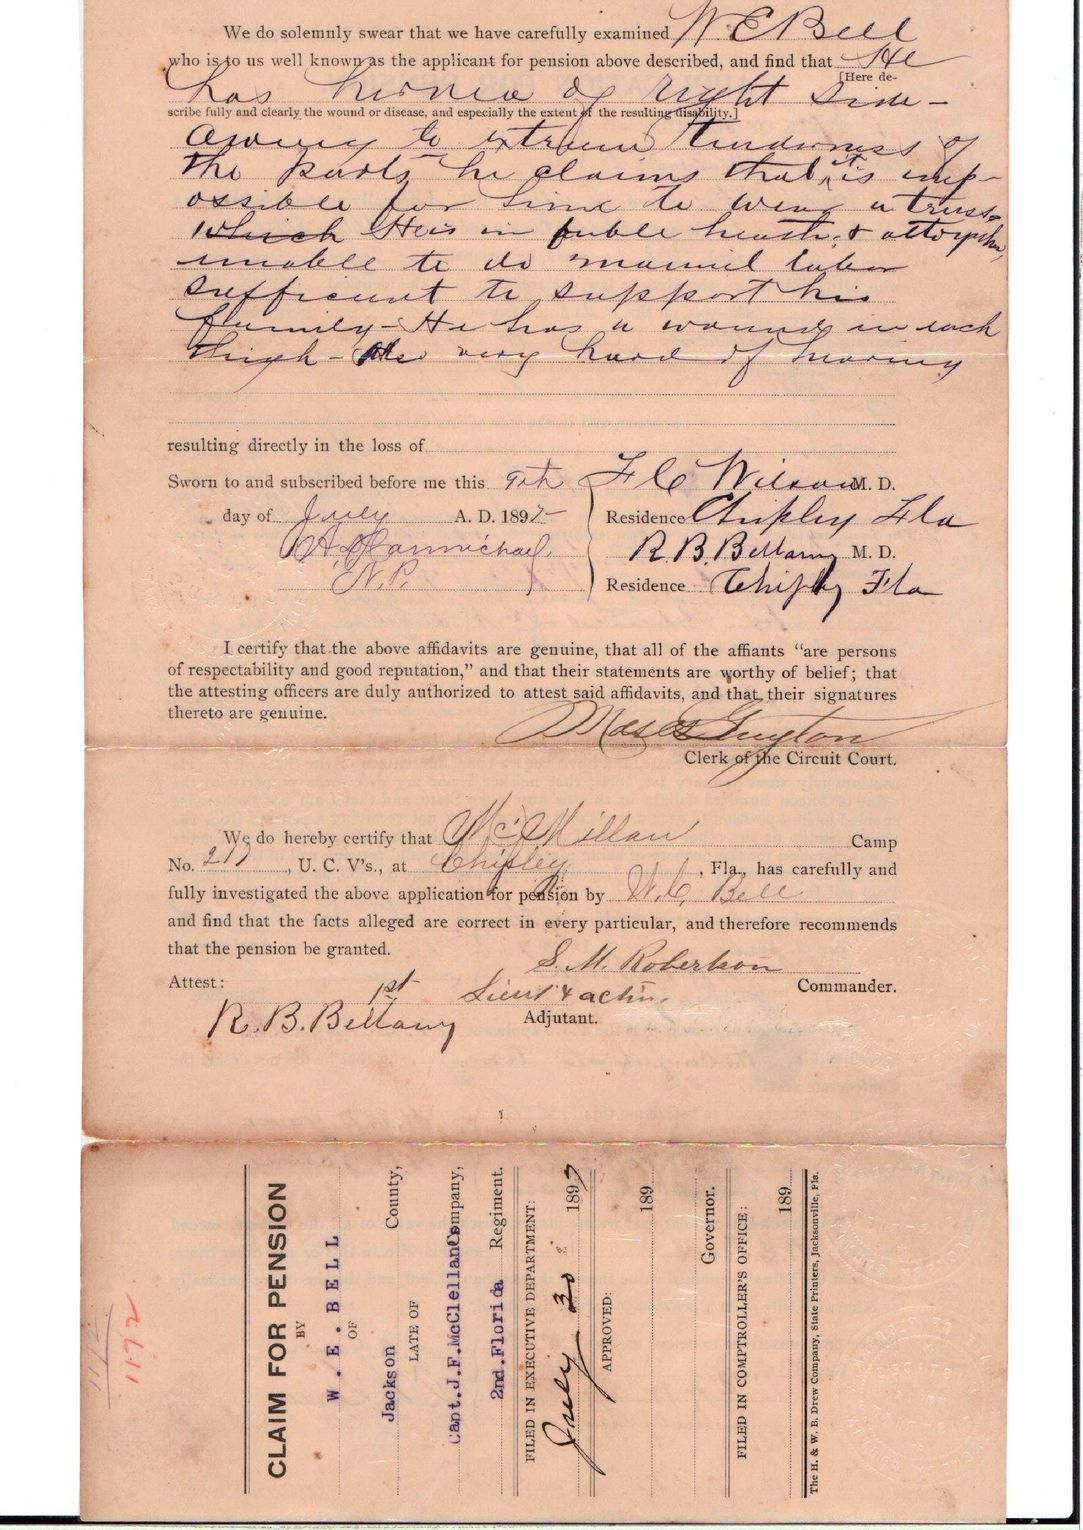 We do solemnly swear that we have carefully examined W. E Bell
who is to us well known as the applicant for pension above described, and find that He
[Here de-
has hernia of right side -
scribe fully and clearly the wound or disease, and especially the extent of the resulting disability.]
Owing to extreme tenderness of
the parts he claims that it is imp-
ossible for him to wear a truss
which He is in feeble health, &
unable to do manuel labor
sufficient to support his
family - He has a wound in each
thigh - Also very hard of hearing
resulting directly in the loss of
Sworn to and subscribed before me this 9th
day of July A. D. 1897
N. P.
F C Wilson M. D.
Residence Chipley Fla
R. B. Bellamy M. D.
Residence Chipley Fla
I certify that the above affidavits are genuine, that all of the affiants "are persons
of respectability and good reputation," and that their statements are worthy of belief; that
the attesting officers are duly authorized to attest said affidavits, and that their signatures
thereto are genuine.
Moses Guyton
Clerk of the Circuit Court.
We do hereby certify that McMillan Camp
No. 217, U. C. V's., at Chipley, Fla., has carefully and
fully investigated the above application for pension by W. E. Bell
and find that the facts alleged are correct in every particular, and therefore recommends
that the pension be granted.
S. M. Robertson
Attest: 1st Lieut & acting Commander.
R. B. Bellamy Adjutant.
CLAIM FOR PENSION
BY
W. E. BELL
OF
Jackson County,
LATE OF
Capt. J.F. McClellans Company,
2nd. Florida Regiment.
FILED IN EXECUTIVE DEPARTMENT:
July 30 1897
APPROVED:
189
Governor.
FILED IN COMPTROLLER'S OFFICE:
189
The H. & W. B. Drew Company, State Printers, Jacksonville, Fla.
1172